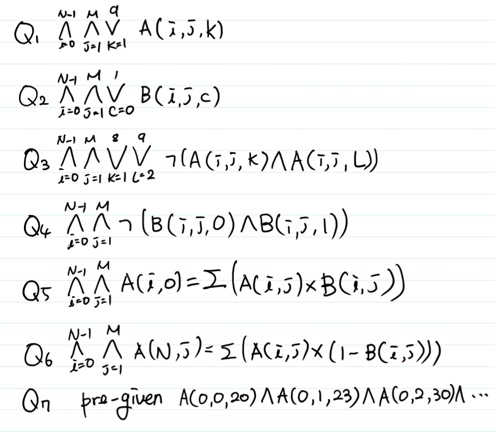 Q₁ ⋀_{i=0}^{N-1} ⋀_{j=1}^{M} ⋁_{k=1}^{9} A(i,j,k)
Q₂ ⋀_{i=0}^{N-1} ⋀_{j=1}^{M} ⋁_{c=0}^{1} B(i,j,c)
Q₃ ⋀_{i=0}^{N-1} ⋀_{j=1}^{M} ⋁_{k=1}^{8} ⋁_{L=2}^{9} ¬(A(i,j,k)∧A(i,j,L))
Q₄ ⋀_{i=0}^{N-1} ⋀_{j=1}^{M} ¬(B(i,j,0)∧B(i,j,1))
Q₅ ⋀_{i=0}^{N-1} ⋀_{j=1}^{M} A(i,0)=Σ(A(i,j)×B(i,j))
Q₆ ⋀_{i=0}^{N-1} ⋀_{j=1}^{M} A(N,j)=Σ(A(i,j)×(1-B(i,j)))
Q₇ pre-given A(0,0,20)∧A(0,1,23)∧A(0,2,30)∧…